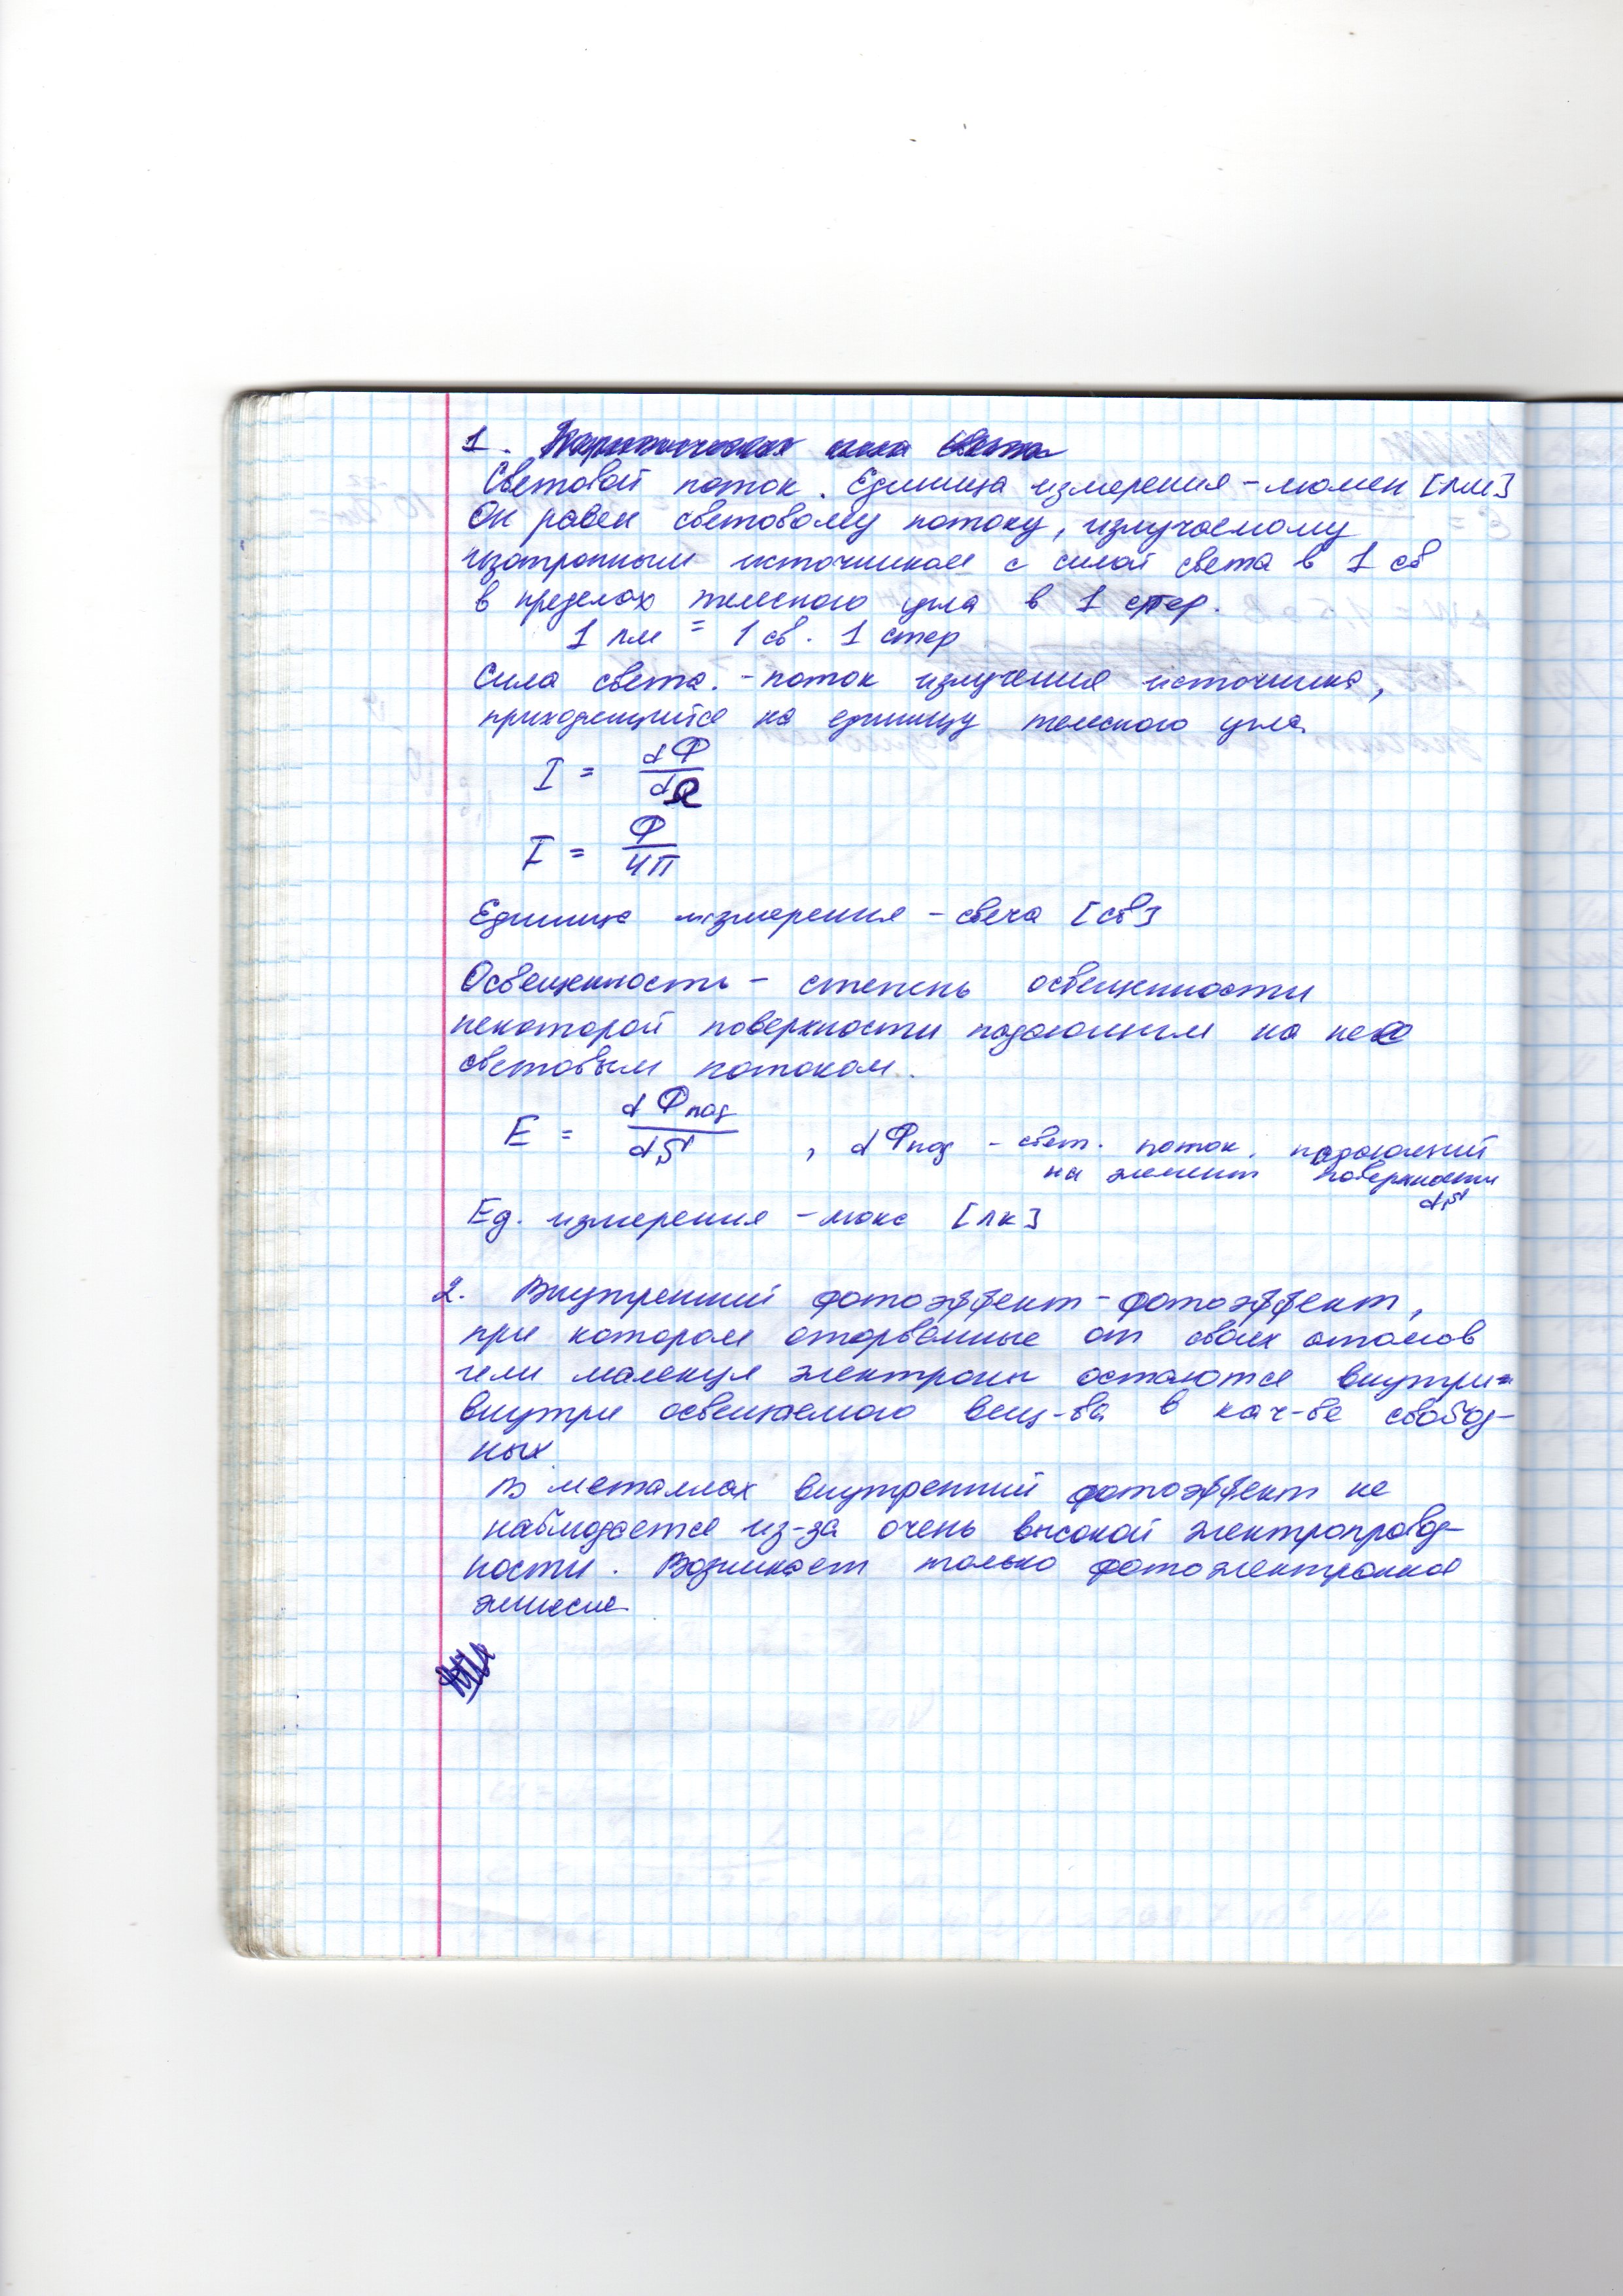 1.
Световой поток. Единица измерения - люмен [лм]
Он равен световому потоку, излучаемому
изотропным источником с силой света в 1 св
в пределах телесного угла в 1 стер.
1 лм = 1 св · 1 стер
Сила света. - поток излучения источника,
приходящийся на единицу телесного угла
I = dФ/dΩ
I = Ф/4π
Единица измерения - свеча [св]
Освещенность - степень освещенности
некоторой поверхности падающим на нее
световым потоком.
E = dФпад/dS , dФпад - свет. поток, падающий
на элемент поверхности
dS
Ед. измерения - люкс [лк]
2. Внутренний фотоэффект - фотоэффект,
при котором оторванные от своих атомов
или молекул электроны остаются внутри
внутри освещаемого вещ-ва в кач-ве свобод-
ных.
В металлах внутренний фотоэффект не
наблюдается из-за очень высокой электропровод-
ности. Возникает только фотоэлектронная
эмиссия